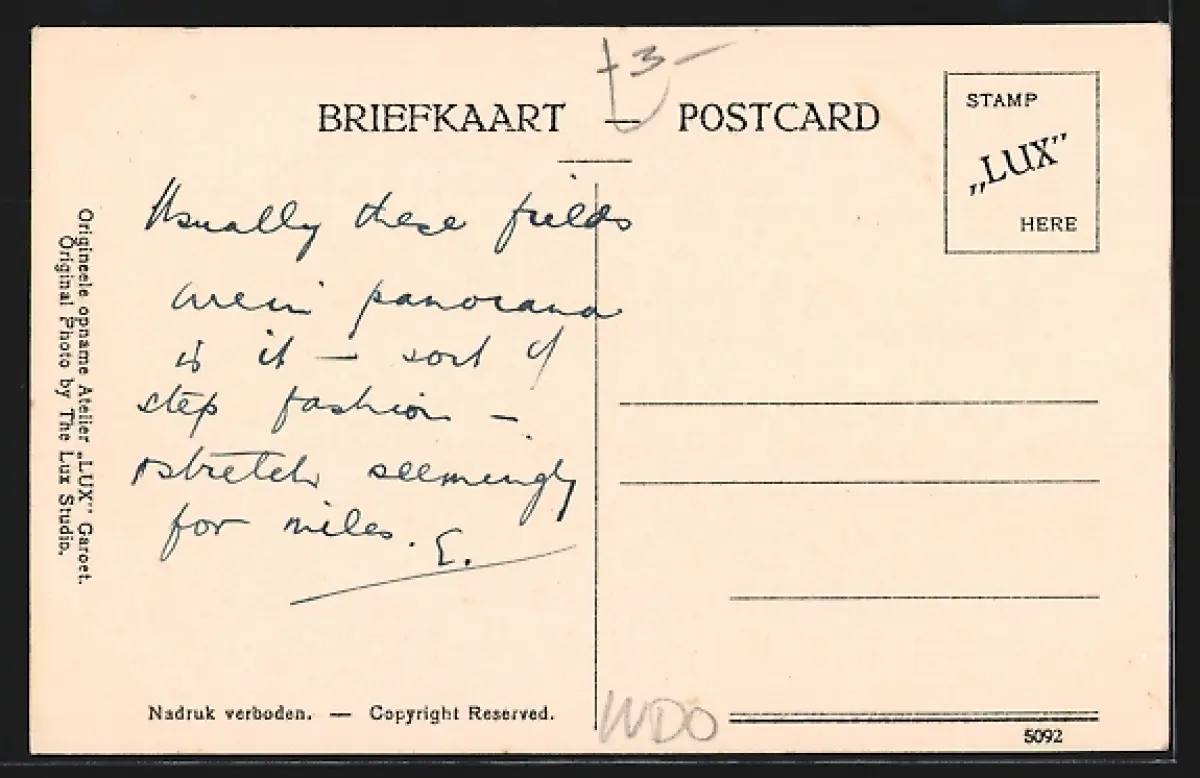 +3-
BRIEFKAART — POSTCARD
STAMP
„LUX"
HERE
Usually these fields
are in panorama
is it — sort of
step fashion —
stretch seemingly
for miles. E.
Origineele opname Atelier „LUX" Garoet.
Original Photo by The Lux Studio.
Nadruk verboden. — Copyright Reserved.
WDO
5092